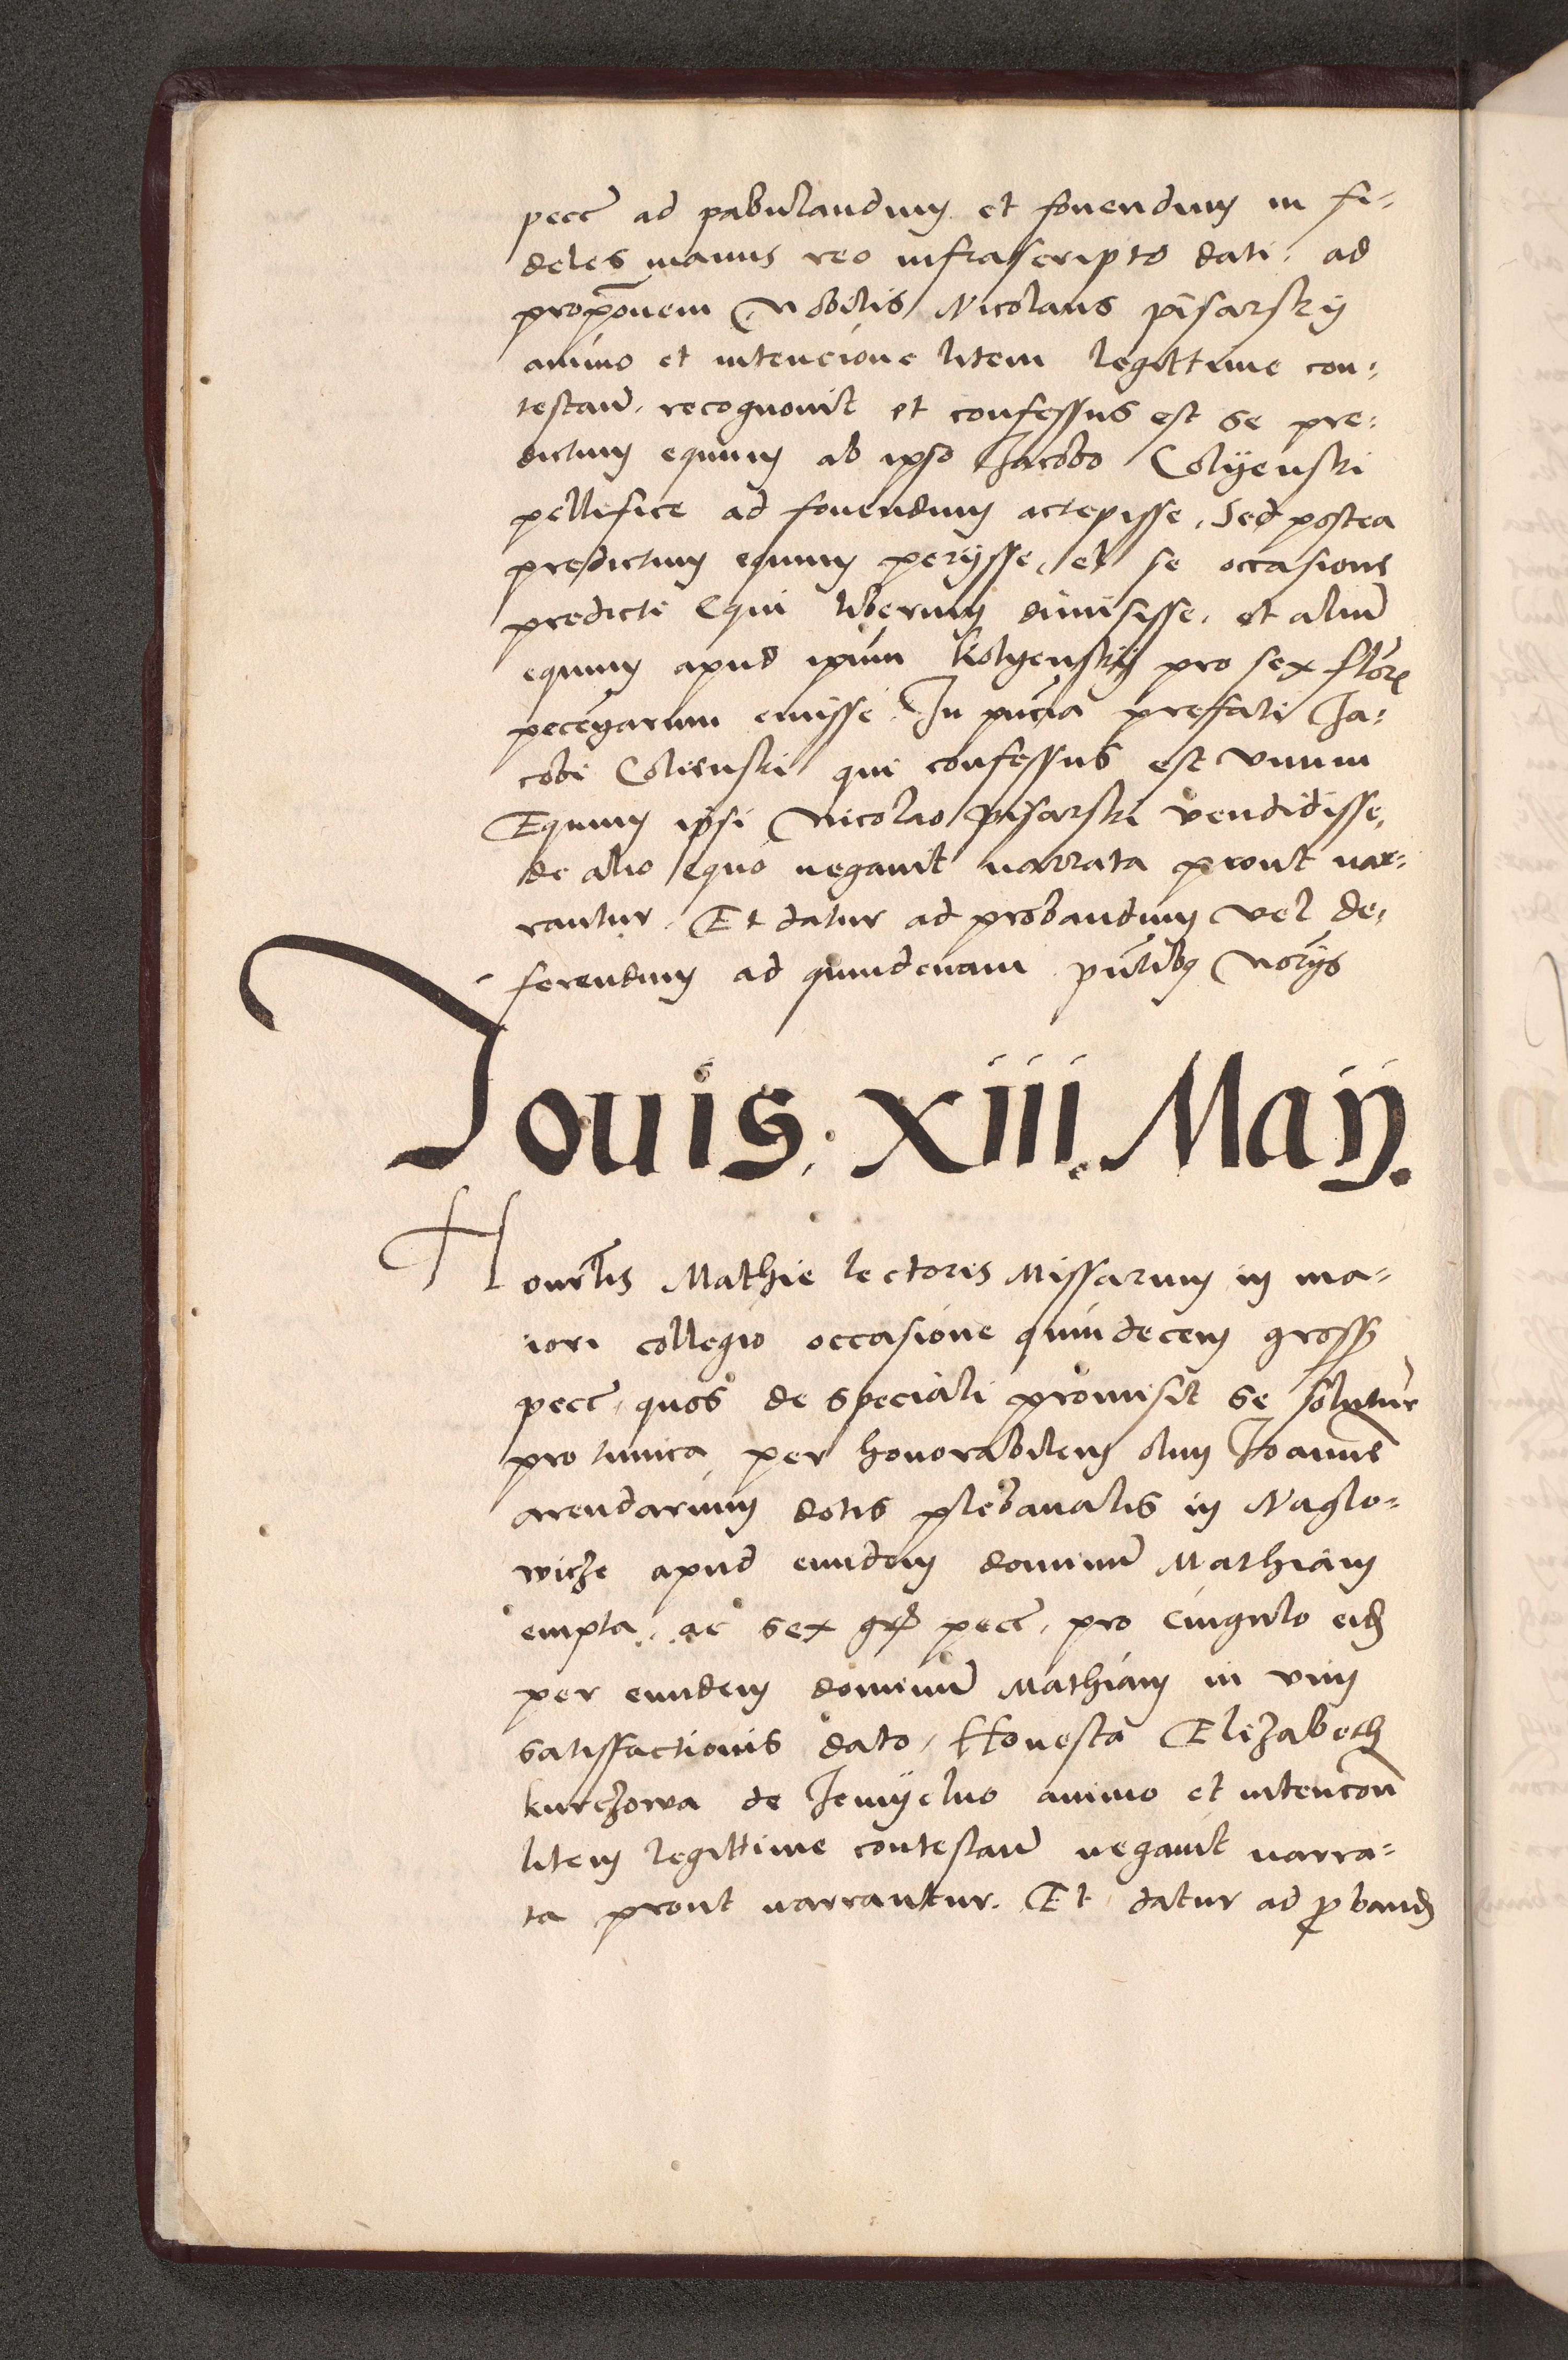 pecc ad pabulandum et fouendum in fi=
deles manus reo infrascripto dati. ad
propōnem Nobilis Nicolaus pisarskij
animo et intencione litem legittime con=
testan̄. recognouit et confessus est se pre=
dictum equum ab ipso Jacobo Colyenski
pellifice ad fouendum accepisse, Sed postea
predictum equum perijsse, et se occasione
predicti Equi liberum dimisisse. et aliu̅
equum apud ipsu̅m Kolyenskij pro sex flor̄
pecc̄ quarum emisse. In pn̄cia prefati Ja=
cobi Colienski qui confessus est vnum
Equum ipsi Nicolao pisarski vendidisse,
de alio equo negauit narrata prout nar=
rantur. Et datur ad probandum vel de=
ferendum ad quindenam pn̄tibꝫ No̅rijs
Jouis: xiii. Maij.
Honor̄lis Mathie lectoris Missarum in ma=
iori collegio occasione quindecem gross
pecc. quos de speciali promisit se solutur̄
pro tunica per honorabilem olim Joanne̅
arendarium dotis plebanalis in Naglo=
wicze apud eundem dominu̅ Mathiam
empta, ac sex gr̄ pecc. pro cingulo eid̄
per eundem dominu̅ Mathiam in vim
satisfactionis dato, Honesta Elizabeth
kurczowa de Jemyelno animo et intencōn̄
litem legittime contestan̄ negauit narra=
ta prout narrantur. Et datur ad ꝓband̄